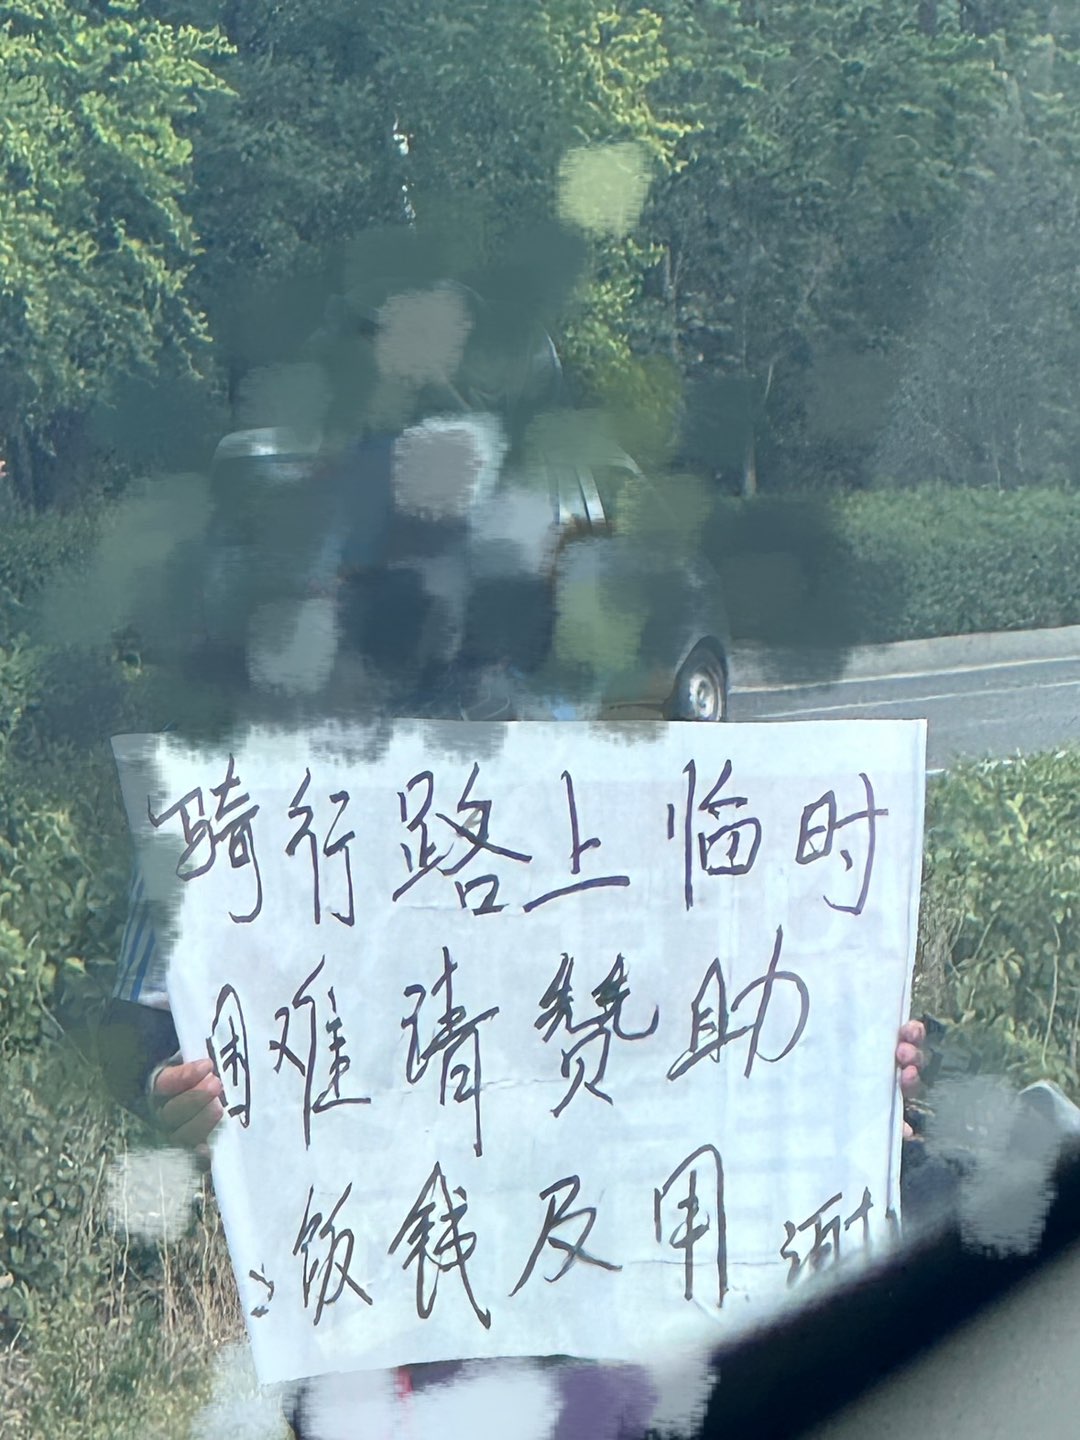 骑行路上临时
困难请赞助
饭钱及用谢